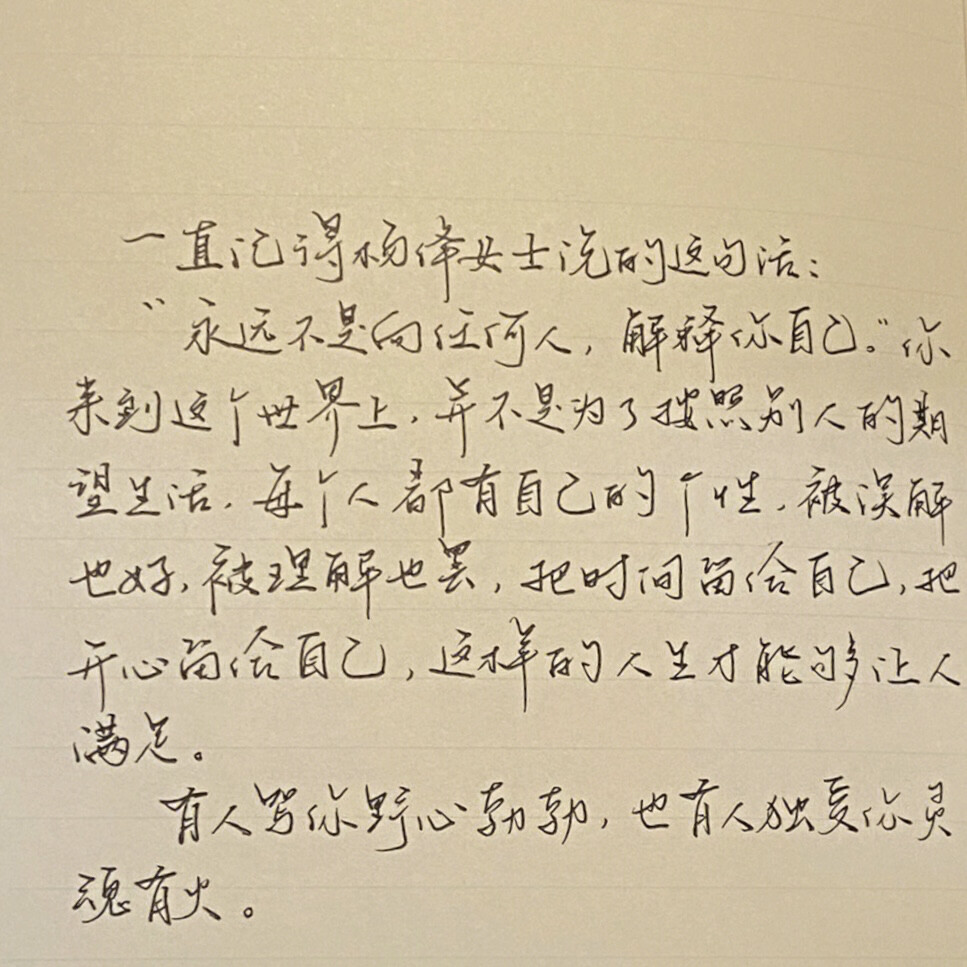 一直记得杨绛女士说的这句话：
“永远不是向任何人，解释你自己。”你
来到这个世界上，并不是为了按照别人的期
望生活，每个人都有自己的个性，被误解
也好，被理解也罢，把时间留给自己，把
开心留给自己，这样的人生才能够让人
满足。
有人骂你野心勃勃，也有人独爱你灵
魂有火。